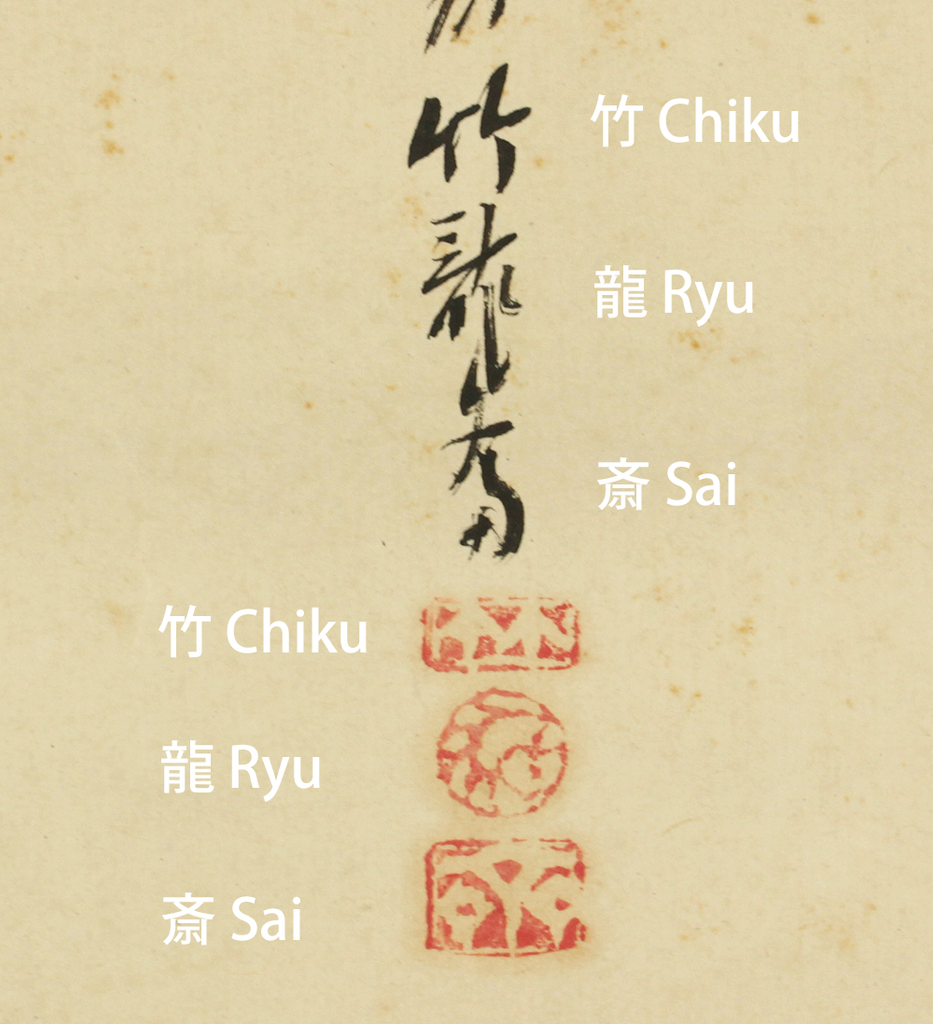 竹龍斎
竹 Chiku
龍 Ryu
斎 Sai
竹 Chiku
龍 Ryu
斎 Sai